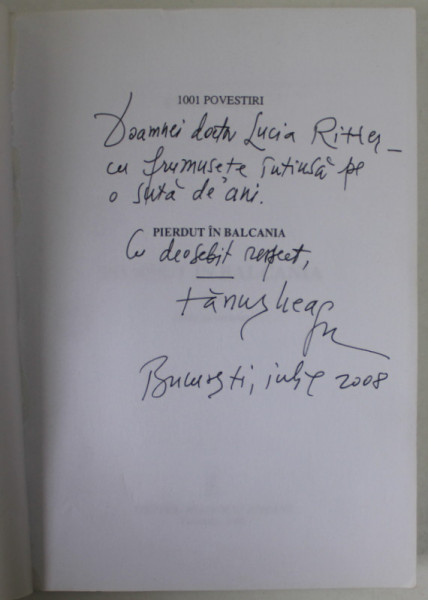 1001 POVESTIRI
Doamnei doctor Lucia Ritter –
cu frumusețe întinsă pe
o sută de ani.
PIERDUT ÎN BALCANIA
Cu deosebit respect,
Fănuș Neagu
București, iulie 2008